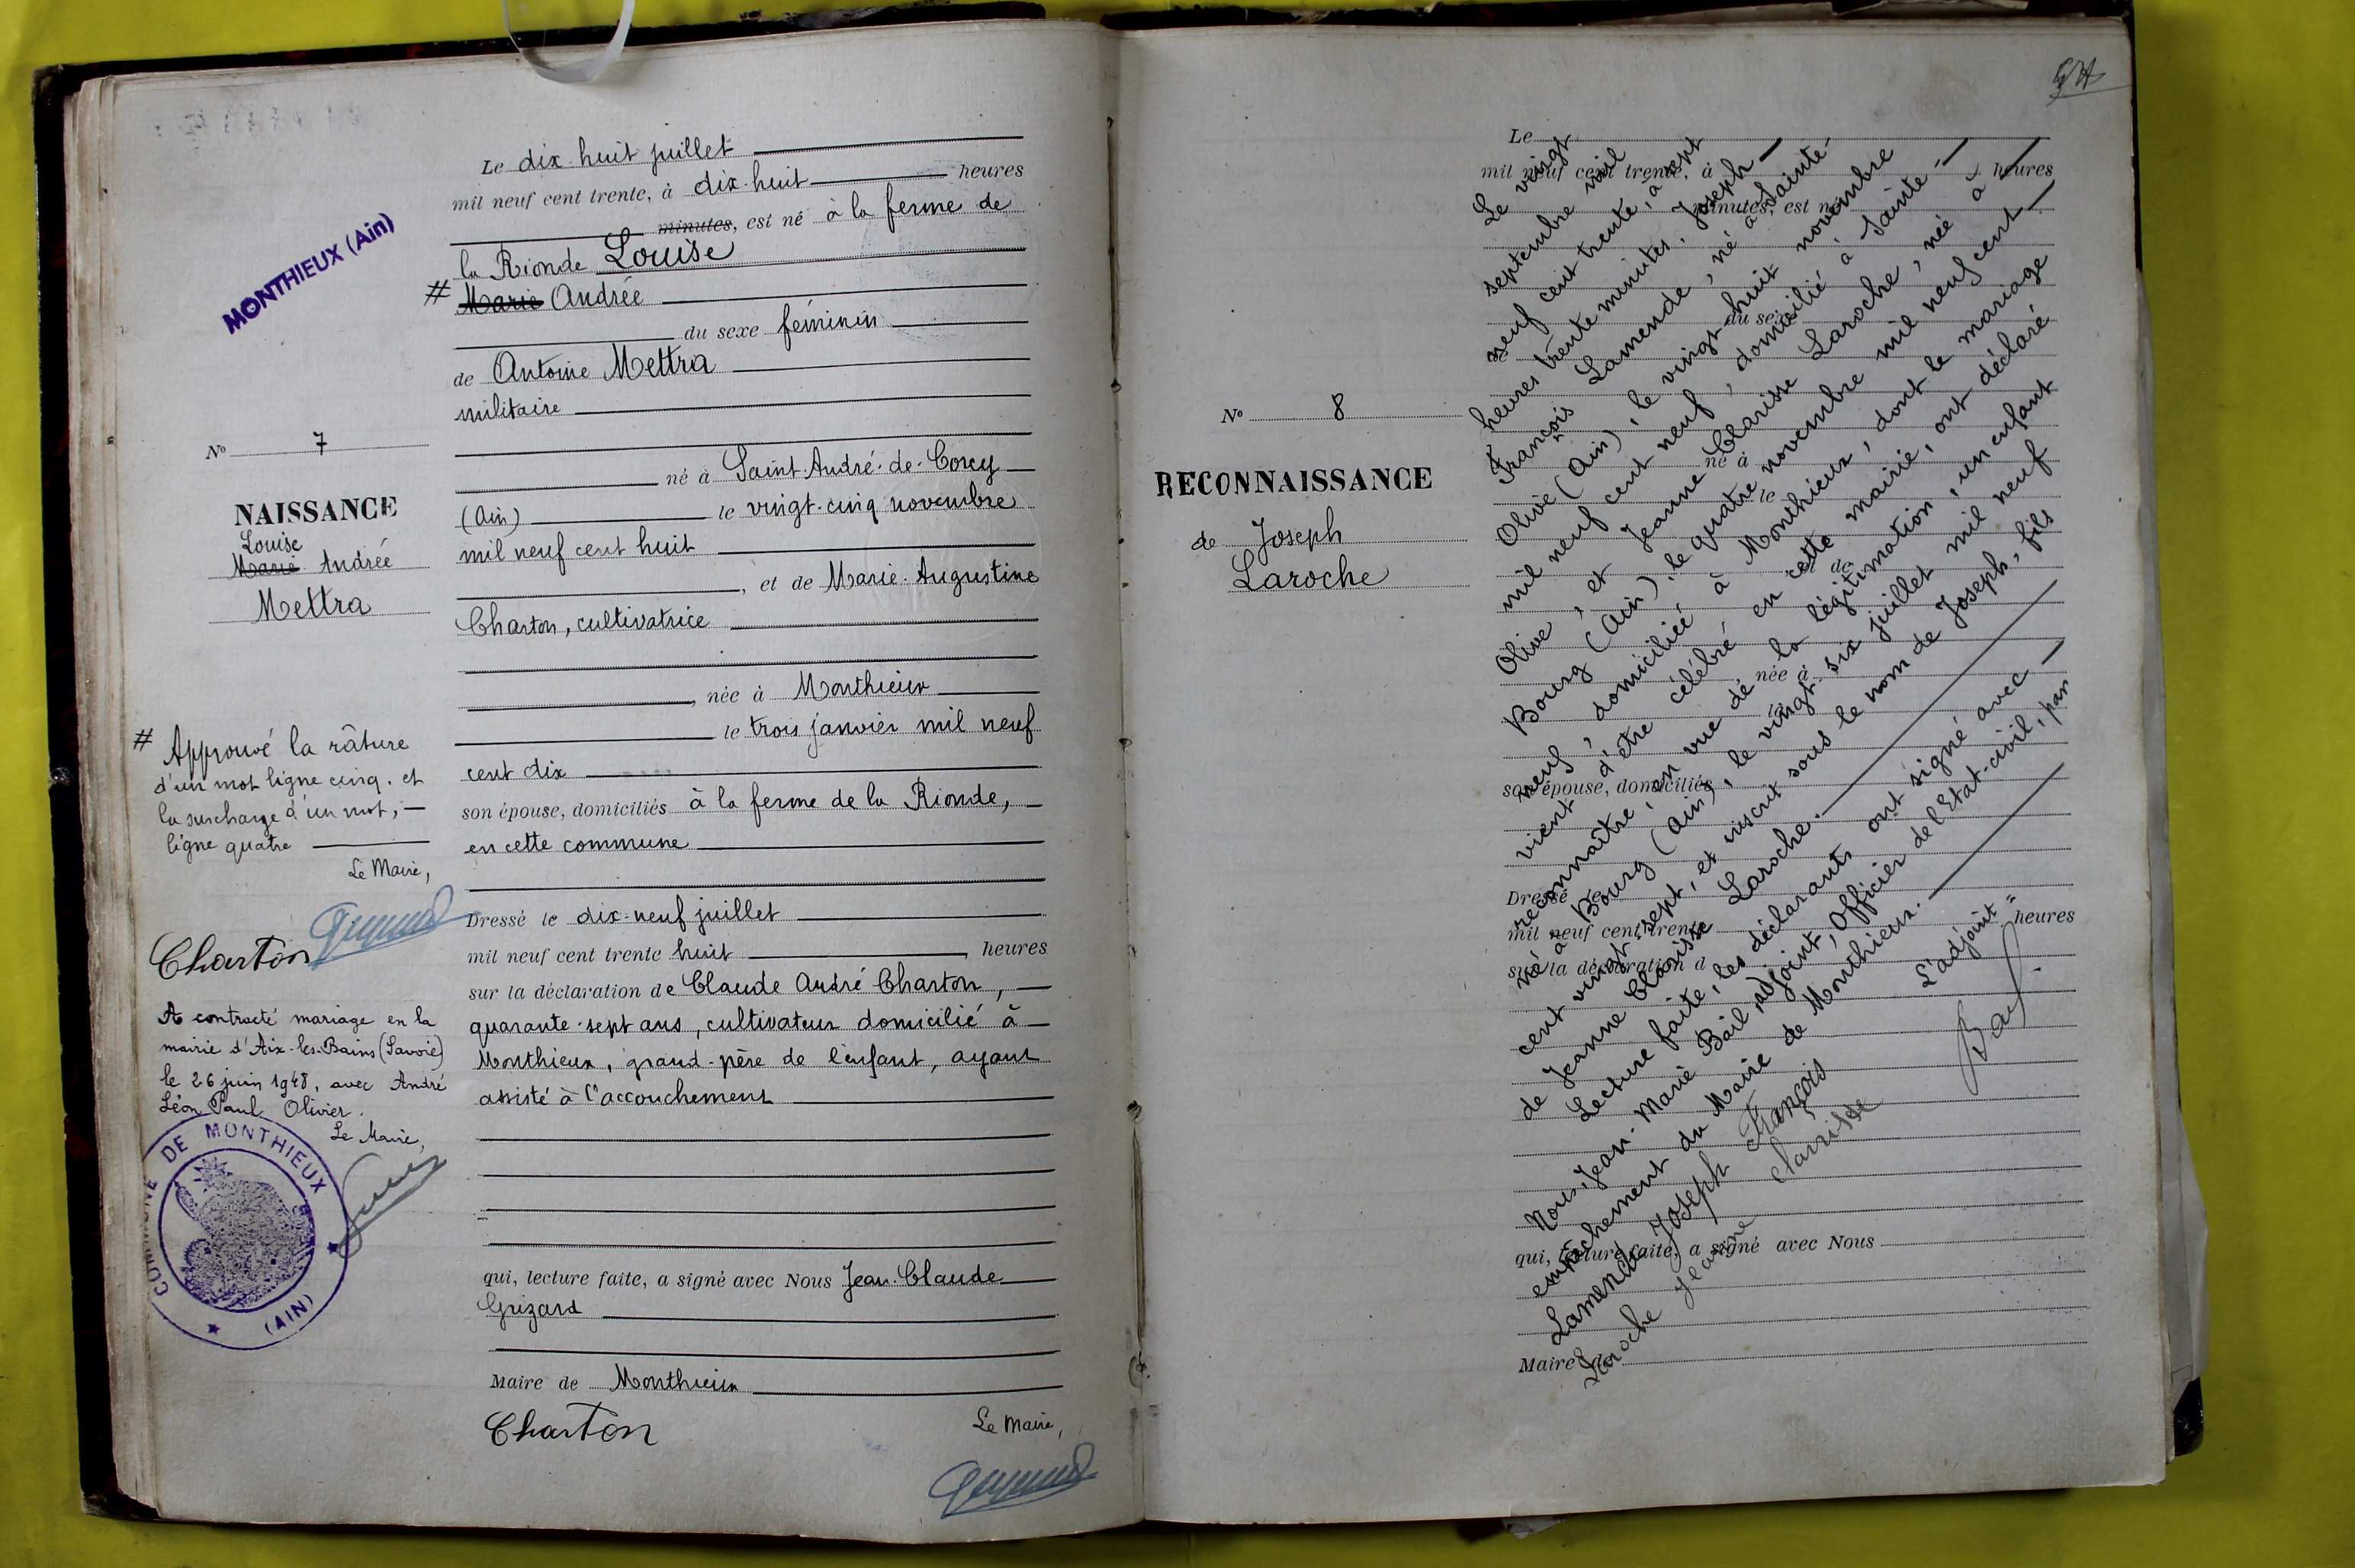 MONTHIEUX (Ain)
N° 7
NAISSANCE
Louise
Marie Andrée
Mettra
# Approuvé la râture
d'un mot ligne cinq. et
la surcharge d'un mot, —
ligne quatre
Le Maire,
Charton
A contracté mariage en la
mairie d'Aix-les-Bains (Savoie)
le 26 juin 1948, avec André
Léon Paul Olivier.
Le Maire,
COMMUNE DE MONTHIEUX
(AIN)
Le dix-huit juillet
mil neuf cent trente, à dix-huit heures
minutes, est né à la ferme de
la Rionde Louise
# Marie Andrée
du sexe féminin
de Antoine Mettra
militaire
né à Saint-André-de-Corcy
(Ain) le vingt-cinq novembre
mil neuf cent huit
, et de Marie-Augustine
Charton, cultivatrice
, née à Monthieux
le trois janvier mil neuf
cent dix
son épouse, domiciliés à la ferme de la Rionde,
en cette commune
Dressé le dix-neuf juillet
mil neuf cent trente huit heures
sur la déclaration de Claude André Charton,
quarante-sept ans, cultivateur domicilié à
Monthieux, grand-père de l'enfant, ayant
assisté à l'accouchement
qui, lecture faite, a signé avec Nous Jean-Claude
Grizard
Maire de Monthieux
Charton
Le Maire,
N° 8
RECONNAISSANCE
de Joseph
Laroche
Le
mil neuf cent trente, à heures
minutes, est né
du sexe
né à
le
et de
née à
le
son épouse, domiciliés
Dressé le
mil neuf cent trente heures
sur la déclaration d
qui, lecture faite, a signé avec Nous
Maire de
Le vingt
septembre mil
neuf cent trente, à sept
heures trente minutes, Joseph
François Lamende, né à Sainte-
Olive (Ain), le vingt-huit novembre
mil neuf cent neuf, domicilié à Sainte-
Olive, et Jeanne Clarisse Laroche, née à
Bourg (Ain), le quatre novembre mil neuf cent
neuf, domiciliée à Monthieux, dont le mariage
vient d'être célébré en cette mairie, ont déclaré
reconnaître, en vue de la légitimation, un enfant
né à Bourg (Ain), le vingt-six juillet mil neuf
cent vingt-sept, et inscrit sous le nom de Joseph, fils
de Jeanne Clarisse Laroche.
Lecture faite, les déclarants ont signé avec
Nous, Jean-Marie Bail, adjoint, Officier de l'Etat-civil, par
empêchement du Maire de Monthieux.
L'adjoint
Lamende Joseph François
Laroche Jeanne Clarisse